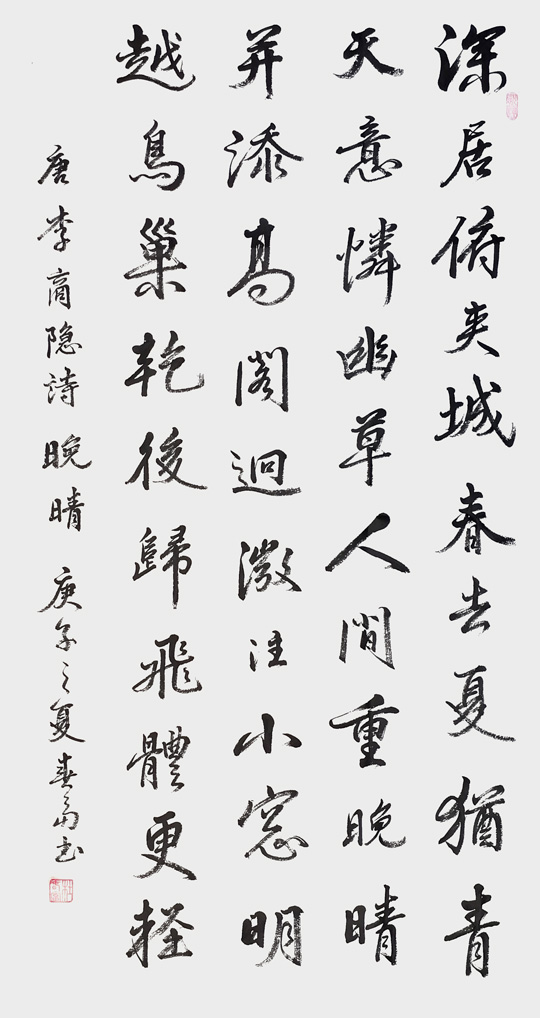 深居俯夹城春去夏猶青
天意憐幽草人間重晚晴
并添高閣迥微注小窓明
越鳥巢乾後歸飛體更軽
唐李商隐詩晚晴 庚子之夏春书